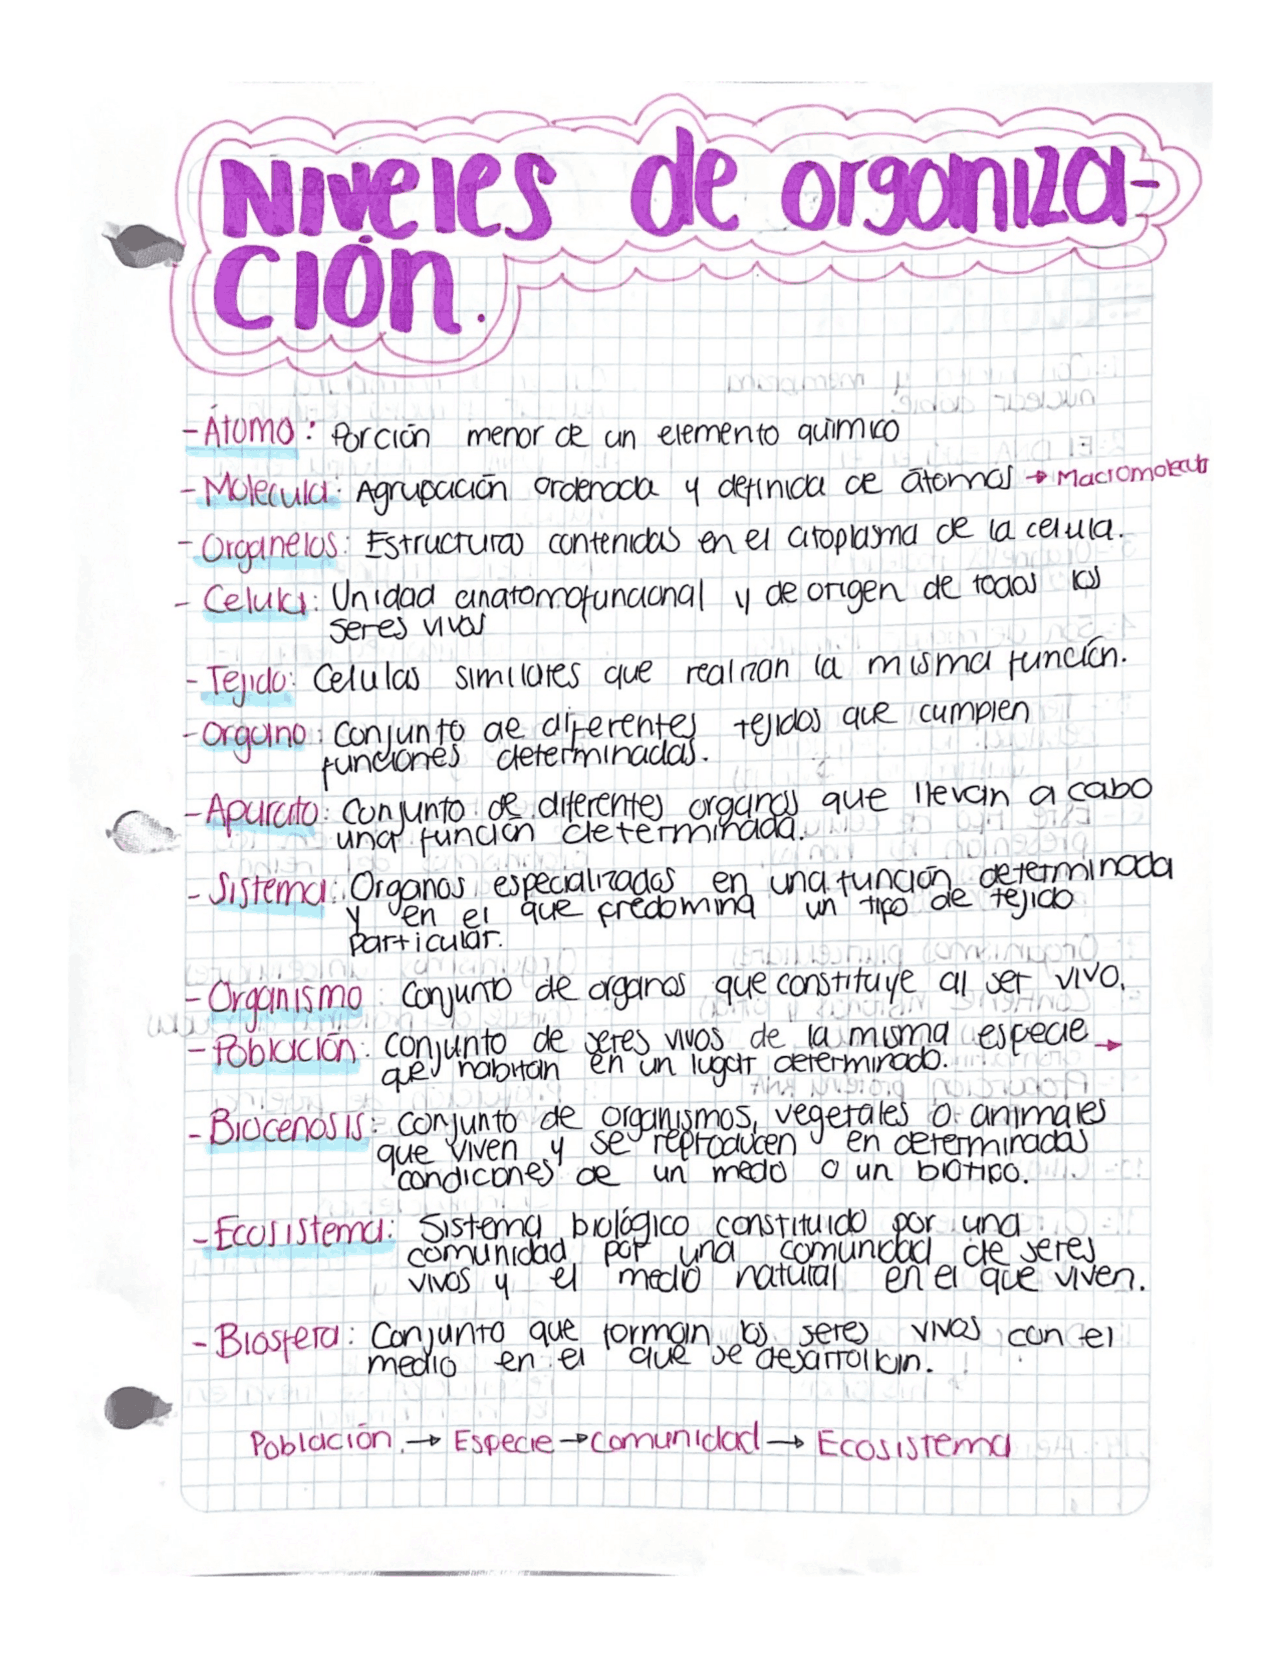 Niveles de organiza-
ción.
- Átomo: Porción menor de un elemento químico
- Molécula: Agrupación ordenada y definida de átomos → Macromolecula
- Organelos: Estructuras contenidas en el citoplasma de la celula.
- Celula: Unidad anatomofuncional y de origen de todos los
seres vivos
- Tejido: Celulas similares que realizan la misma función.
- Organo: Conjunto de diferentes tejidos que cumplen
funciones determinadas.
- Aparato: Conjunto de diferentes organos que llevan a cabo
una función determinada.
- Sistema: Organos especializados en una función determinada
y en el que predomina un tipo de tejido
particular.
- Organismo: Conjunto de organos que constituye al ser vivo.
- Población: Conjunto de seres vivos de la misma especie →
que habitan en un lugar determinado.
- Biocenosis: Conjunto de organismos, vegetales o animales
que viven y se reproducen en determinadas
condicones de un medo o un biotipo.
- Ecosistema: Sistema biológico constituido por una
comunidad por una comunidad de seres
vivos y el medio natural en el que viven.
- Biosfera: Conjunto que forman los seres vivos con el
medio en el que se desarrollan.
Población → Especie → Comunidad → Ecosistema